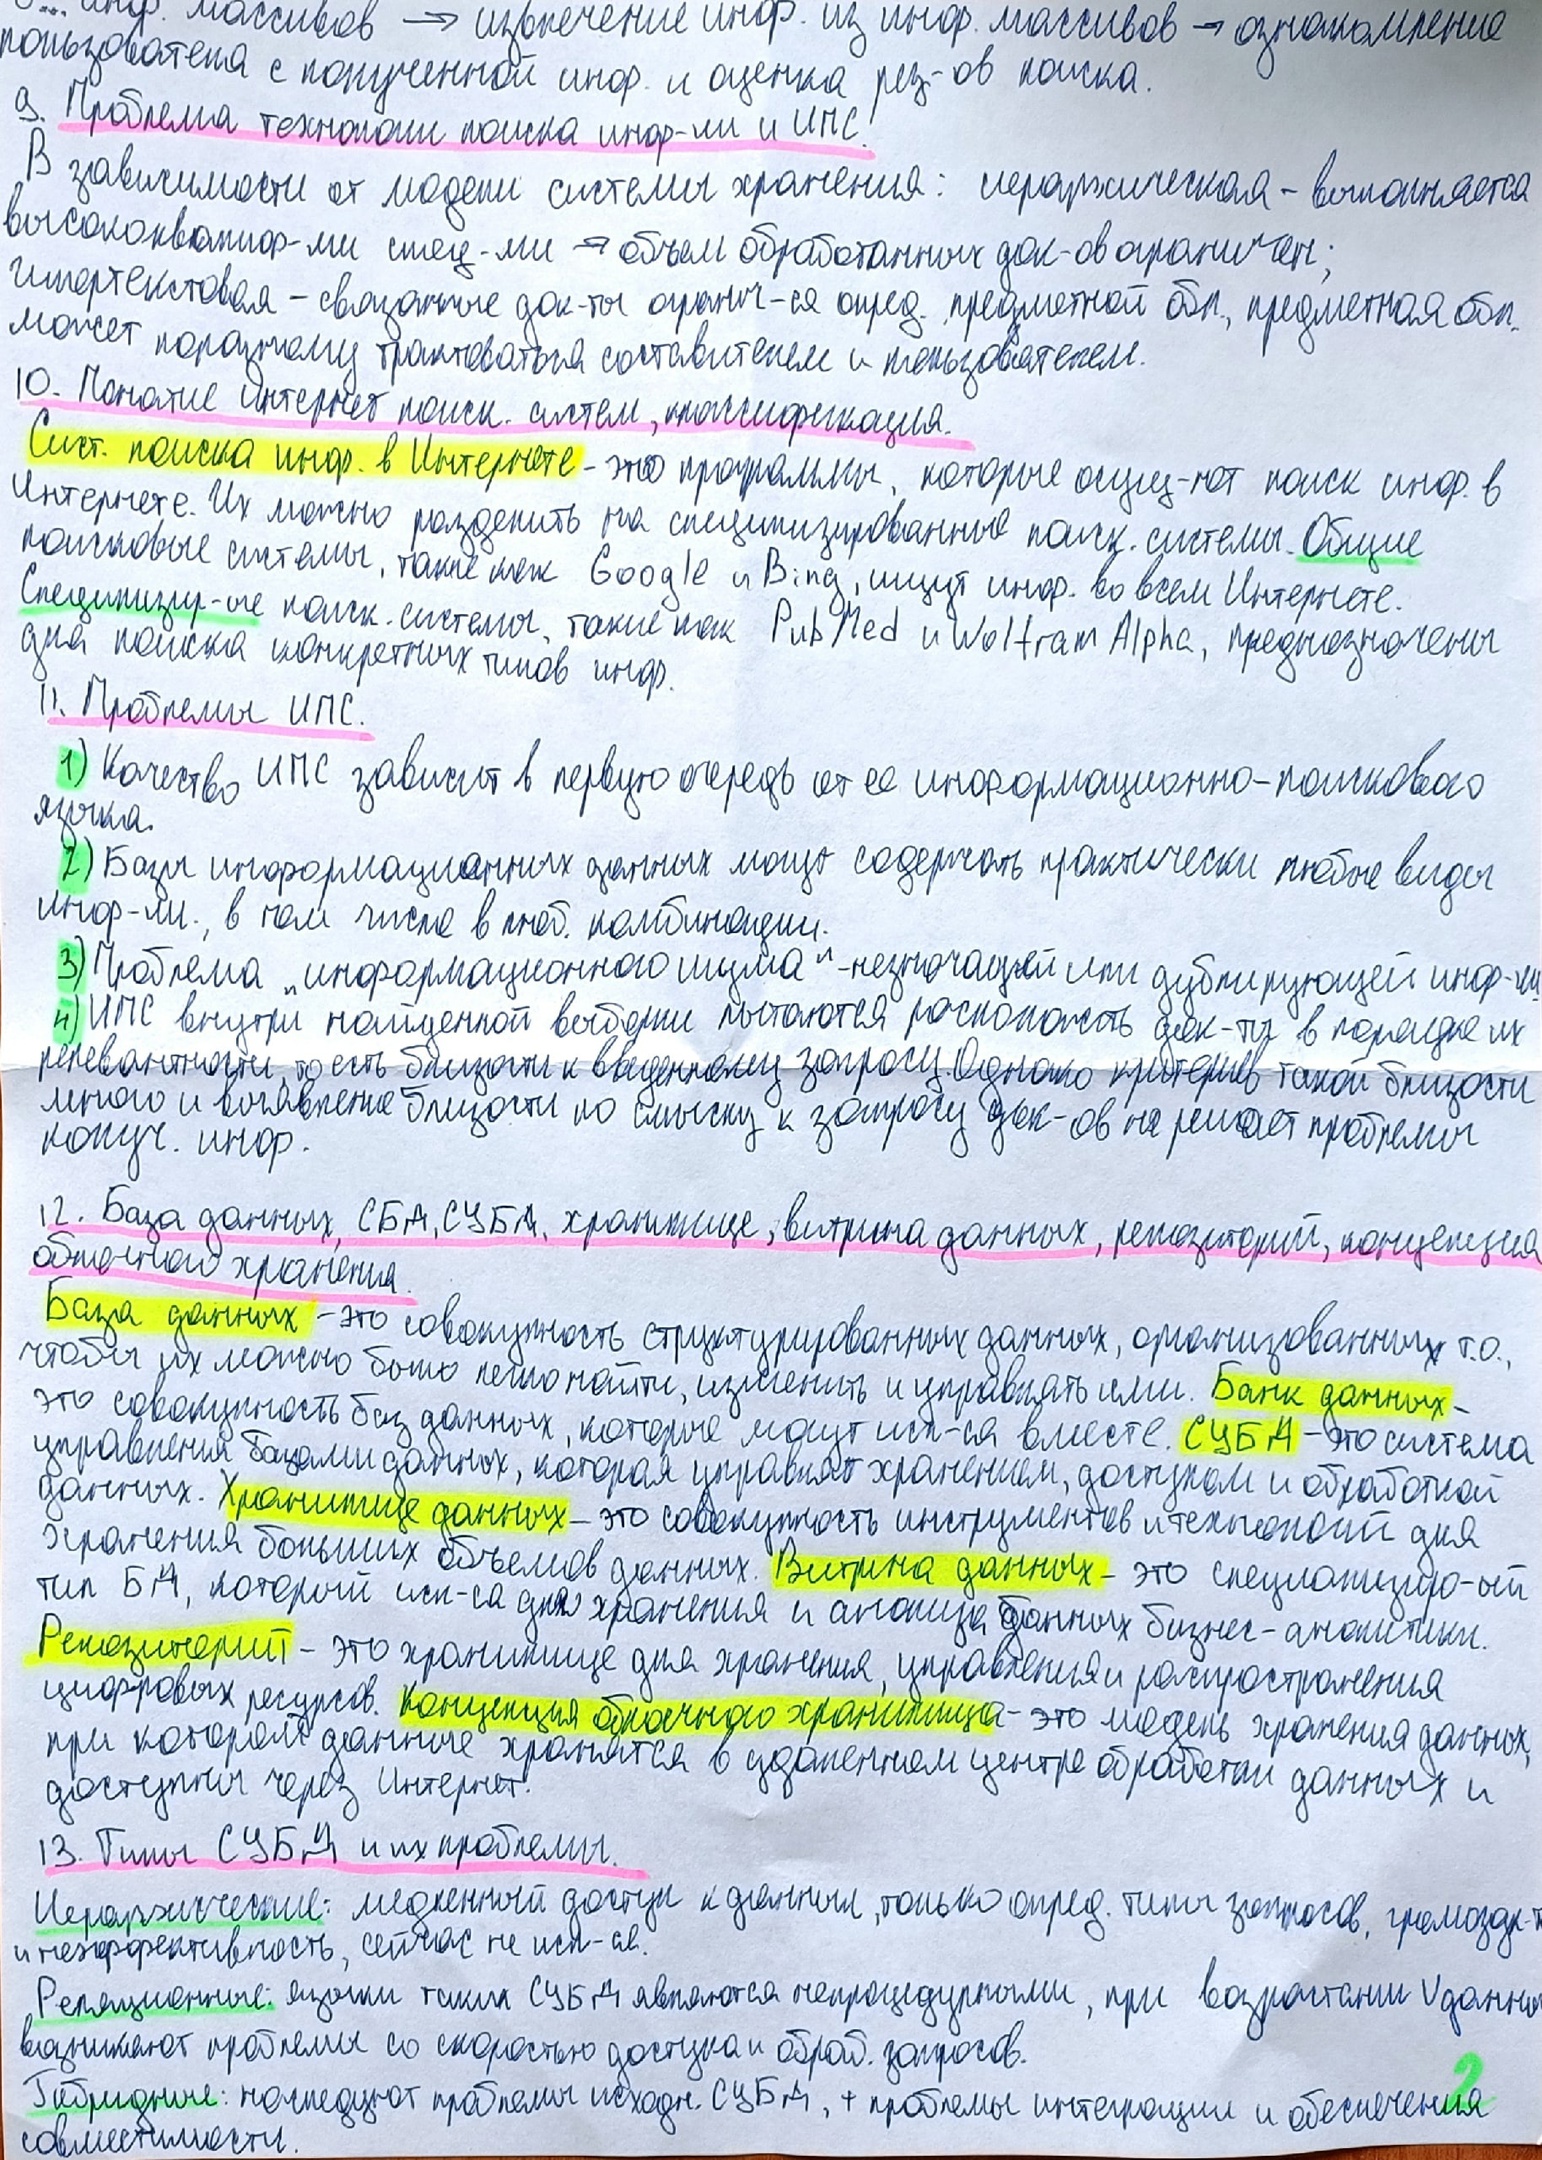 инф. массивов → извлечение инф. из инф. массивов → ознакомление
пользователя с полученной инф. и оценка рез-ов поиска.
9. Проблема технологии поиска инф-ли и ИПС.
В зависимости от модели системы хранения: иерархическая - выполняется
высококвалиф-ми спец-ми → объем обработанных док-ов ограничен;
гипертекстовая - связанные док-ты огранич-ся опред. предметной обл., предметная обл.
может поразному трактоваться составителем и пользователем.
10. Понятие интернет поиск. систем, классификация.
Сист. поиска инф. в Интернете - это программы, которые осущ-ют поиск инф. в
Интернете. Их можно разделить на специлизированные поиск. системы. Общие
поисковые системы, такие как Google и Bing, ищут инф. во всем Интернете.
Специлизир-ые поиск. системы, такие как PubMed и Wolfram Alpha, предназначены
для поиска конкретных типов инф.
11. Проблемы ИПС.
1) Качество ИПС зависит в первую очередь от ее информационно-поискового
языка.
2) Базы информационных данных могут содержать практически любые виды
инф-ли., в том числе в люб. комбинации.
3) Проблема „информационного шума" - незначащей или дублирующей инф-ли
4) ИПС внутри найденной выборки пытаются расположить док-ты в порядке их
релевантности, то есть близости к введенному запросу. Однако критериев такой близости
много и выявление близости по смыслу к запросу док-ов не решает проблемы
получ. инф.
12. База данных, СБД, СУБД, хранилище, витрина данных, репозиторий, концепция
облачного хранения.
База данных - это совокупность структурированных данных, организованных т.о.,
чтобы их можно было легко найти, изменить и управлять ими. Банк данных -
это совокупность баз данных, которые могут исп-ся вместе. СУБД - это система
управления базами данных, которая управляет хранением, доступом и обработкой
данных. Хранилище данных - это совокупность инструментов и технологий для
хранения больших объемов данных. Витрина данных - это специализир-ый
тип БД, который исп-са для хранения и анализа данных бизнес-аналитики.
Репозиторий - это хранилище для хранения, управления и распространения
цифровых ресурсов. Концепция облачного хранилища - это модель хранения данных,
при котором данные хранятся в удаленном центре обработки данных и
доступны через Интернет.
13. Типы СУБД и их проблемы.
Иерархические: медленный доступ к данным, только опред. типы запросов, громозд-ть
и неэффективность, сейчас не исп-ся.
Реляционные: языки таких СУБД являются непроцедурными, при возрастании V данных
возникают проблемы со скоростью доступа и обраб. запросов.
Гибридные: наследуют проблемы исходн. СУБД, + проблемы интеграции и обеспечения
совместимости.
2